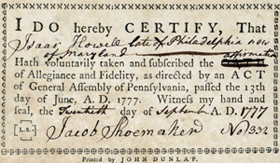 I DO hereby CERTIFY, That
Isaac Howell late of Philadelphia now
of Maryland affirmation
Hath voluntarily taken and subscribed the
of Allegiance and Fidelity, as directed by an ACT
of General Assembly of Pennsylvania, passed the 13th
day of June, A. D. 1777. Witness my hand and
seal, the Twentieth day of September A. D. 1777
L.S. Jacob Shoemaker No 232
Printed by JOHN DUNLAP.